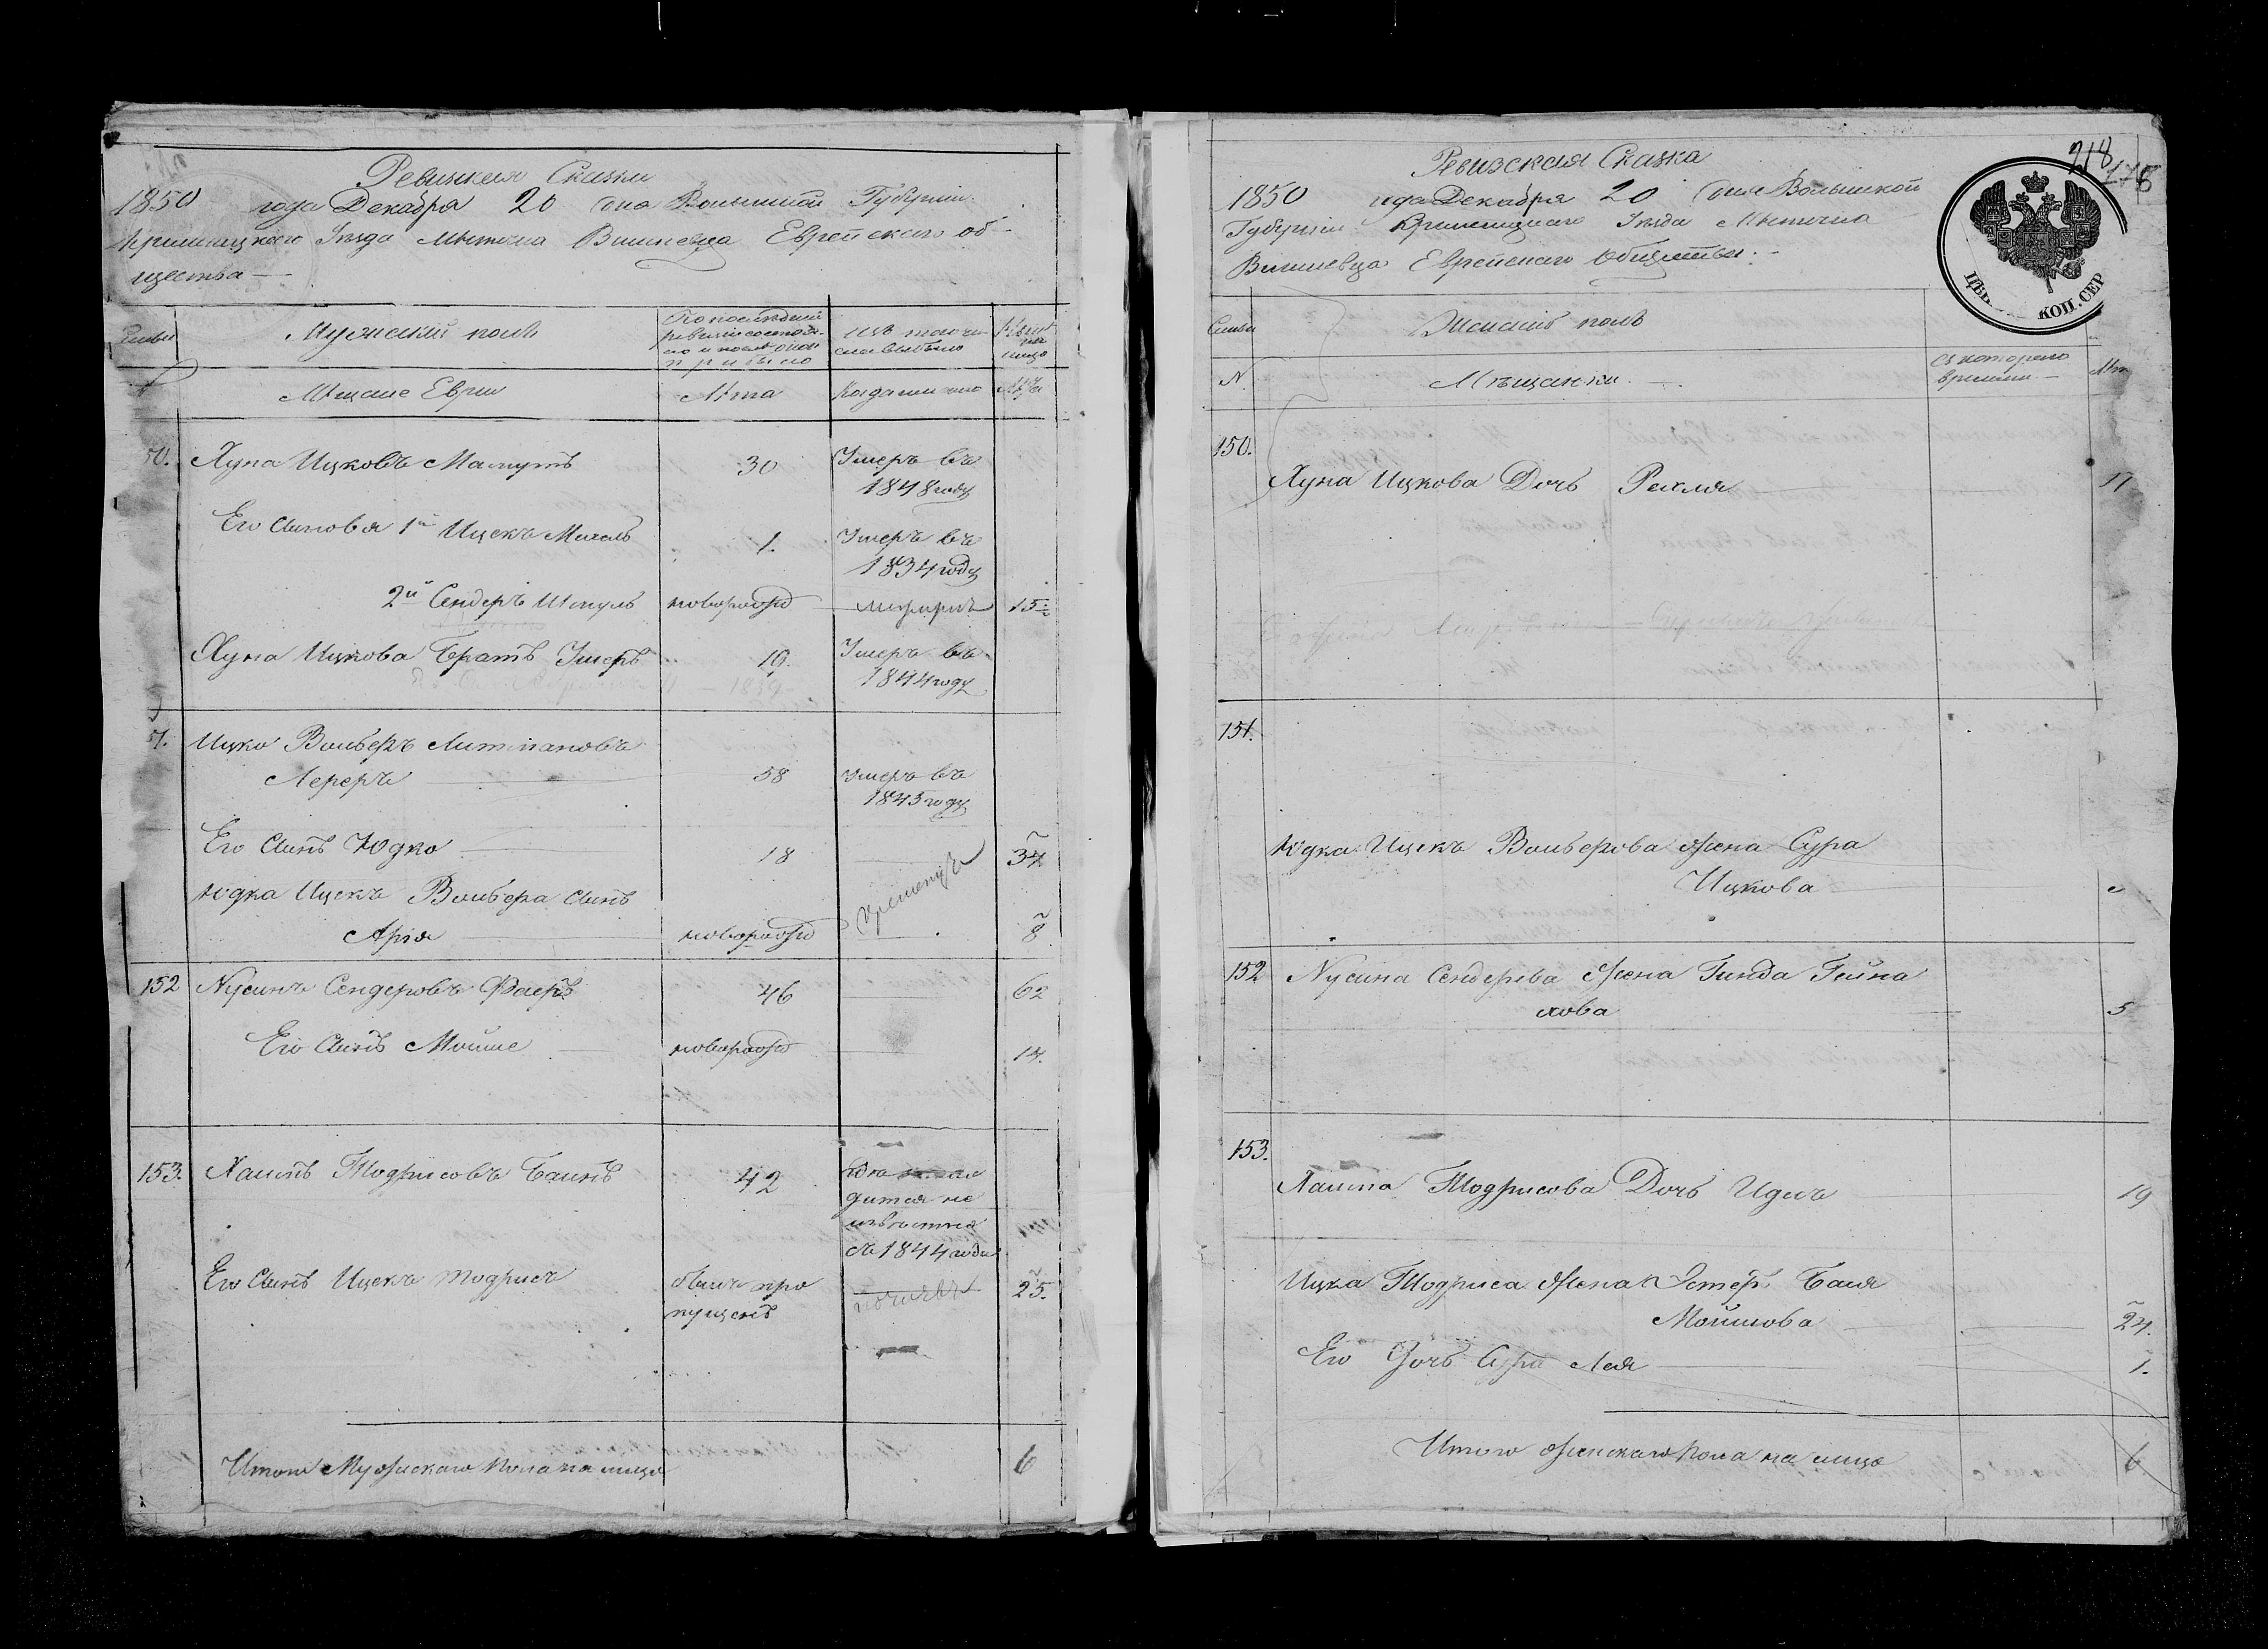 Ревизкая Сказки
1850 года Декабря 20 дна Волынской Губерніи
Кременецкаго Уѣзда Мѣстечка Вишневца Еврейскаго об-
щества
Семьи
Мужеский полъ
По последней
ревизіи состоя-
ло и после оной
прибыло
Изъ того чи
сла выбыло
Нынѣ
на
лицо
№
Мѣщане Евреи
Лѣта
Когда именно
Лѣта
50. Хуна Ицковъ 30 Умеръ въ
1848 году
Его Сыновья 1й Ицекъ Михель 1. Умеръ въ
1834 году
2й Сендеръ Шмуль новорожд 15
Хуна Ицкова Братъ 10. Умеръ въ
1844 году
51. Ицко Вольберъ
Лереръ 58 умеръ въ
1845 году
Его Сынъ Юдко 18 34
Юдка Ицекъ Вольбера Сынъ
Арія новорожд Кременецъ 8
152 Нусинъ Сендеровъ Фаеръ 46 62
Его Сынъ Мойше новорожд 14.
153. Хаимъ Тодрисовъ 42
дится не
извѣстно
съ 1844 года
Его Сынъ Ицекъ Тодрисъ былъ про
пущенъ 25.
Итого Мужескаго пола на лицо 6
Ревизская Сказка
218
1850 года Декабря 20 дня Волынской
Губерніи Кременецкаго Уѣзда Мѣстечка
Вишневца Еврейскаго Общества.
КОП. СЕР
Семьи
Женскій полъ
№
Мѣщанки
Съ котораго
времени
Лѣта
150.
Хуна Ицкова Дочь Рехля 17
151.
Юдка Ицекъ Вольберова Жена Сура
Ицкова
152 Нусина Сендерова Жена Гинда Гейна
хова 5
153.
Хаима Тодрисова Дочь 19
Ицка Тодриса Жена Эстер Бася
Мошкова 24.
Его Дочь Сура Лея 1.
Итого Женскаго пола на лицо 6